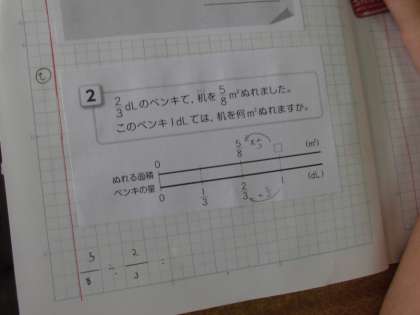 て
2
2/3 dLのペンキで、机を 5/8 m²ぬれました。
このペンキ1dLでは、机を何m²ぬれますか。
ぬれる面積 0 5/8 □ (m²)
ペンキの量 0 1/3 2/3 1 (dL)
5/8 ÷ 2/3 =